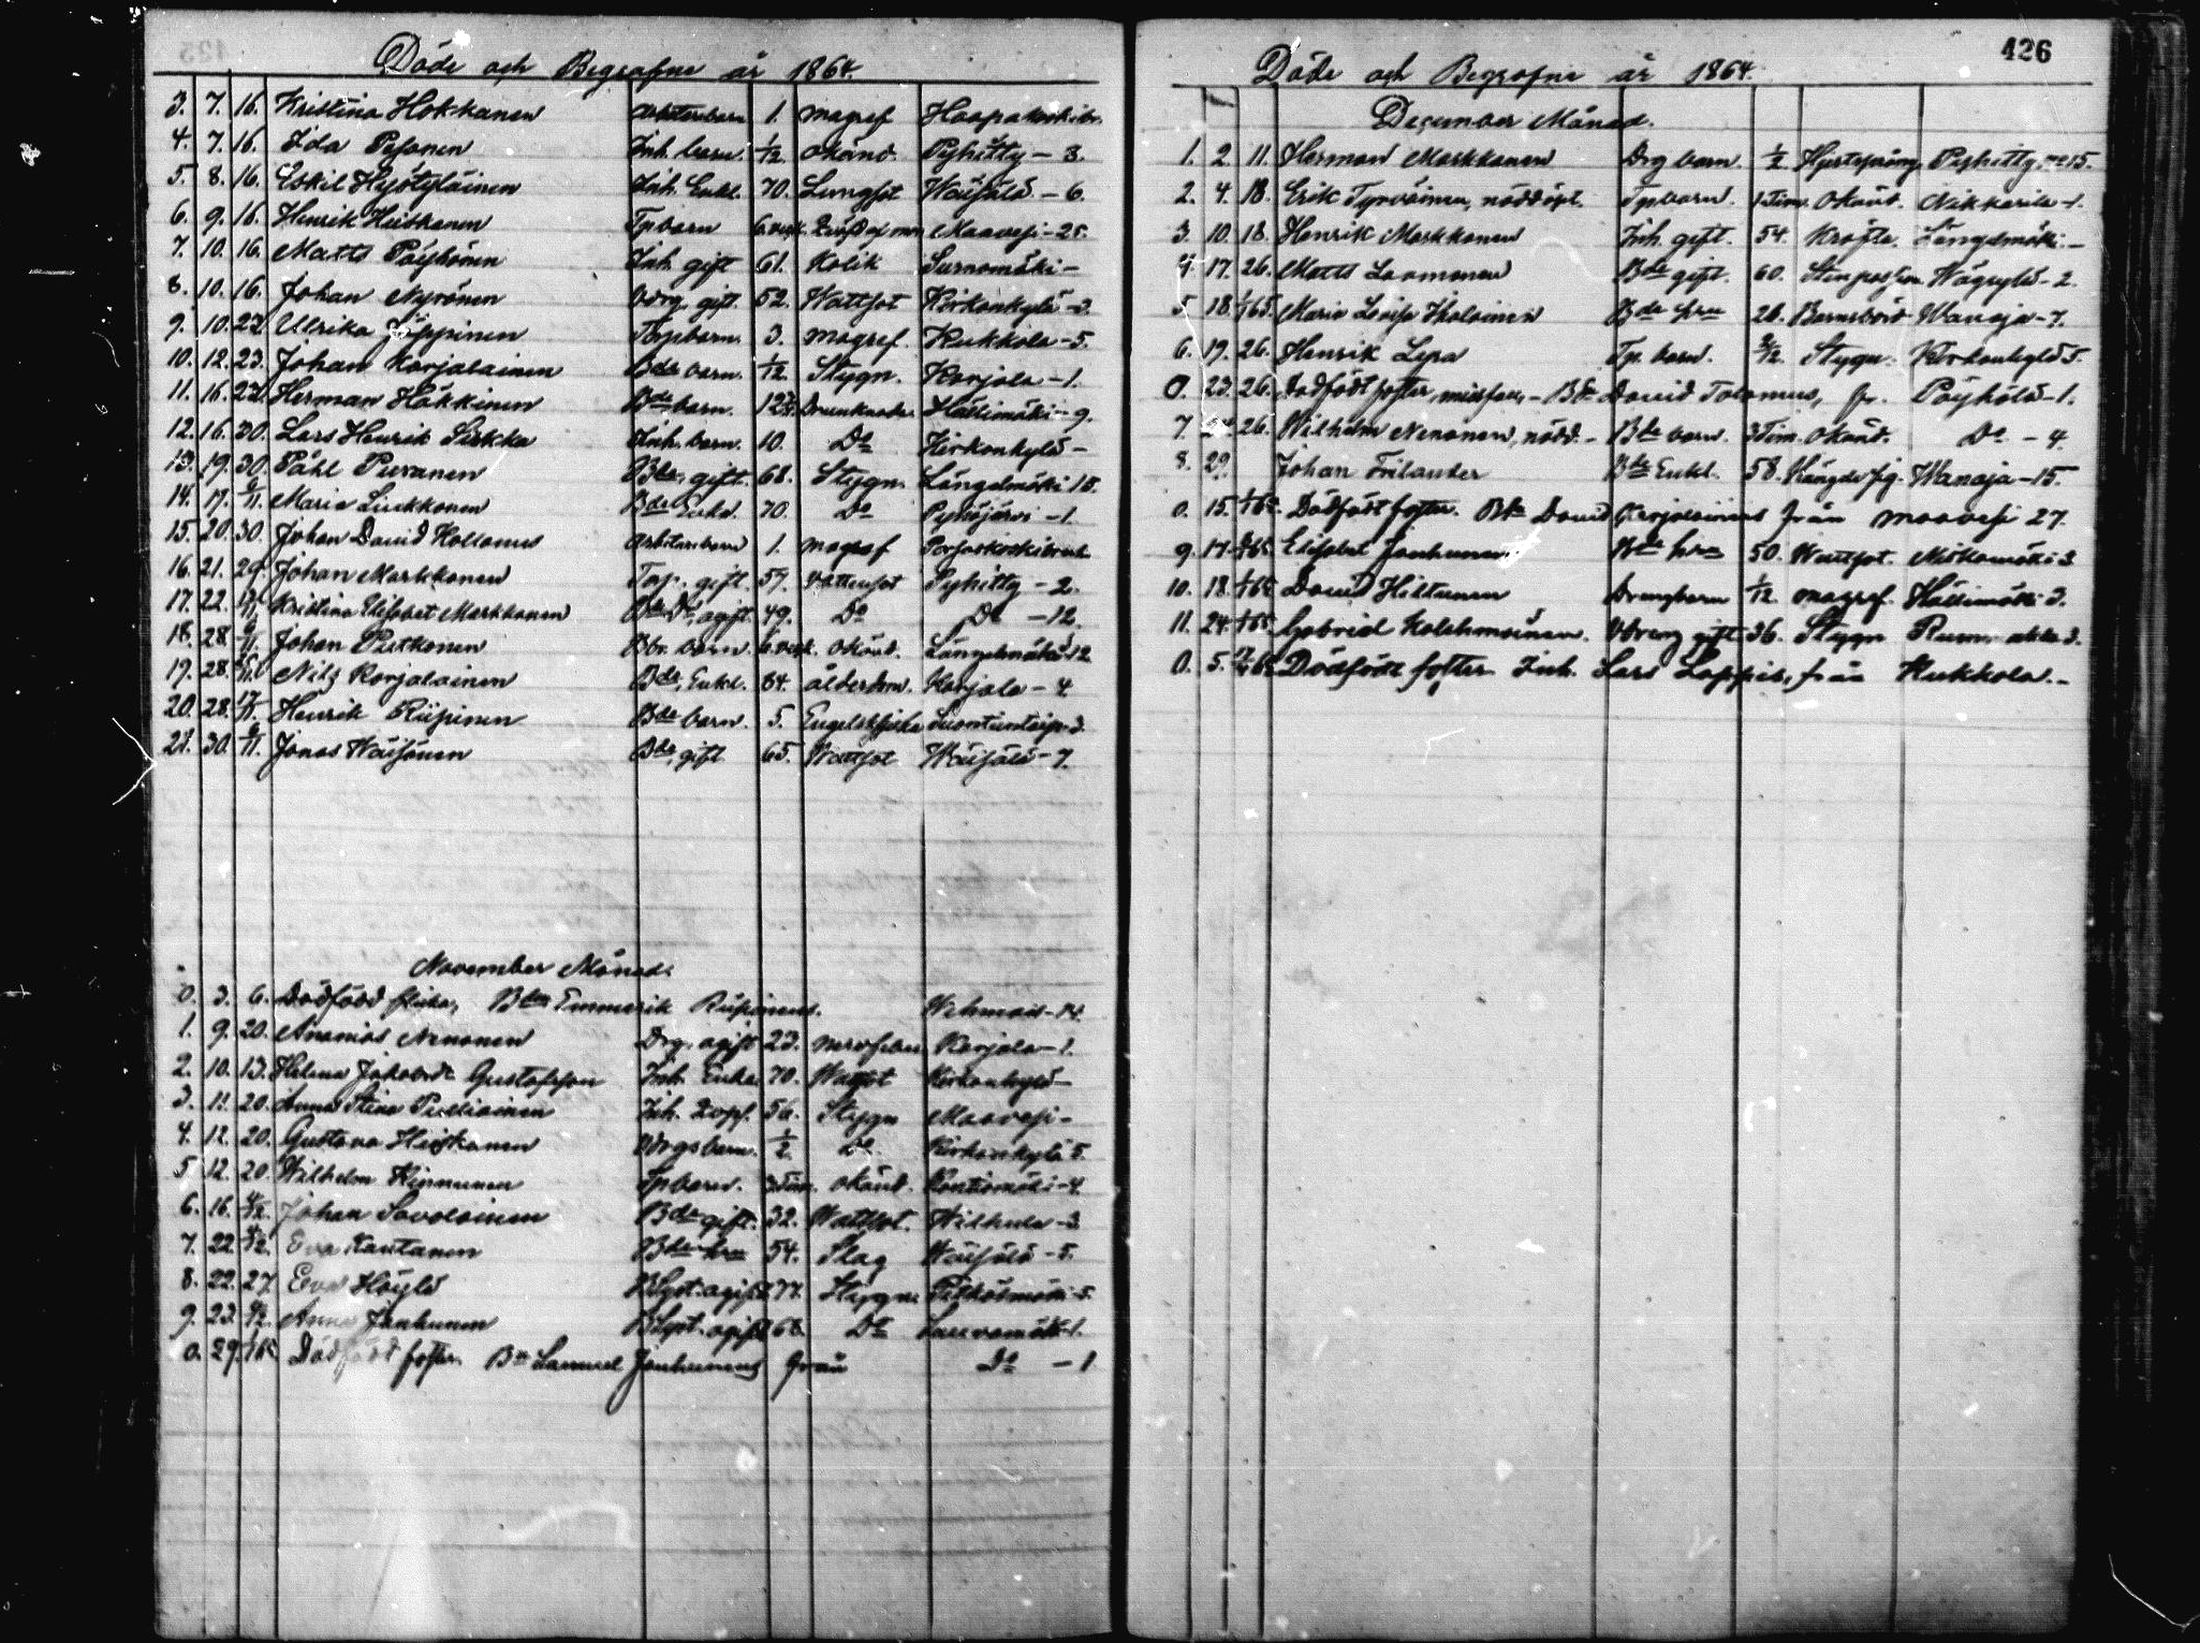 Döde och Begrafne år 1864.
3. 7. 16. Kristina Hokkanen arbetarebarn 1. magref Haapakoski br.
4. 7. 16. Ida Pesonen Inh. barn. 1/12. okänd. Pyhitty - 3.
5. 8. 16. Eskil Hyötyläinen Inh. Enkl. 70. Lungsot Wäisälä - 6.
6. 9. 16. Henrik Heiskanen Tpbarn 6. veck. Maavesi - 25.
7. 10. 16. Matts Pöyhönen Inh. gift 61. Kolik Surnomäki -
8. 10. 16. Johan Nyrönen gift. 52. Wattsot Kirkonkylä - 3.
9. 10. 23. Ulrika Seppinen Torpbarn. 3. magref. Kukkola - 5.
10. 12. 23. Johan Karjalainen Bde barn. 1/12. Stygn. Karjala - 1.
11. 16. 23. Herman Häkkinen Bde barn. Drunknade. Hällimäki - 9.
12. 16. 30. Lars Henrik Sirkka Inh. barn. 10. Do Kirkonkylä -
13. 19. 30. Påhl Puranen Bde, gift. 68. Stygn. Längelmäki 15.
14. 17. 6/11. Maria Liukkonen Bde Enka. 70. Do Pyhäjärvi - 1.
15. 20. 30. Johan David Hollanus arbetarebarn 1. magref Porsaskoski bruk
16. 21. 29. Johan Markkanen Torp. gift. 57. Vattusot Pyhitty - 2.
17. 22. Kristina Elisabet Markkanen Bde Dr, ogift 49. Do Do - 12.
18. 28. 6/11. Johan Pietkonen barn. 6. veck. okänd. Längelmäki 12.
19. 28. Nils Karjalainen Bde, Enkl. 84. ålderdom. Karjala - 4.
20. 28. Henrik Riipinen Bde barn. 5. Engelsksjuka Suontientaip. 3.
21. 30. 6/11. Jonas Wäisänen Bde, gift 65. Wattsot Wäisälä - 7.
November Månad.
0. 3. 6. Dödfödd flicka, Bdn Emmerik Riipinens. Wehmais - 14.
1. 9. 20. Ananias Nenonen Drg. ogift 23. nervfeber Karjala - 1.
2. 10. 13. Helena Jakobsdr Gustafsson Inh. Enka 70. Wattsot Kirkonkylä -
3. 11. 20. Anna Stina Pulliainen Inh. 56. Stygn Maavesi -
4. 12. 20. Gustava Heiskanen barn. 1/2. Do. Kirkonkylä 5.
5 12. 20. Wilhelm Kinnunen Tpbarn. 3 Tim. okänd. Kontiomäki - 4.
6. 16. 4/12. Johan Savolainen Bde gift. 32. Wattsot. Wilhula - 3.
7. 22. 4/12. Eva Kautanen Bde hru 54. Slag Wäisälä - 5.
8. 22. 27. Eva Häylä ogift 77. Stygn. Pitkälmäki - 5.
9. 23. 4/12. Anna Janhunen ogift 68. Do Lauvamäki - 1.
0. 29. Dödfödt foster. Bn Samuel Janhunens från Do - 1
426
Döde och Begrafne år 1864.
December Månad.
1. 2. 11. Herman Markkanen Drg barn. 1/2. Hjertspräng Pyhitty no 15.
2. 4. 18. Erik Tyrväinen, nöddöpt. Tpbarn. 1 Tim. okänd. Nikkarila - 1.
3. 10. 18. Henrik Markkanen Inh. gift. 54. Kräfta. Längelmäki -
4. 17. 26. Matts Laamanen Bde gift. 60. Stenpassion Wägrylä - 2.
5 18. 1/1 65. Maria Lovisa Iholainen Bde hru 26. Barnsbörd Wanaja - 7.
6. 19. 26. Henrik Lepa Tp. barn. 2/12. Stygn. Kirkonkylä 5.
0. 23. 26. Dödfödt foster, - Bde David Tolonens, fr. Pöyhölä - 1.
7. 26. Wilhelm Nenonen, nödd. - Bde barn. 3 Tim. okänd. Do - 4.
8. 29. Johan Frilander Bde Enkl. 58. Hängde sig. Wanaja - 15.
0. 15. Dödfödt foster. Bde David Karjalainens från Maavesi 27.
9. 17. Elisabet Janhunen. Bde hru 50. Wattsot. Niskamäki 3
10. 18. David Hiltunen Drengbarn 1/12. magref. Hällimäki 3.
11. 24. Gabriel Kolehmainen. gift 36. Stygn 3.
0. 5. Dödfödt foster Inh. Lars Lappis, från Kukkola. -